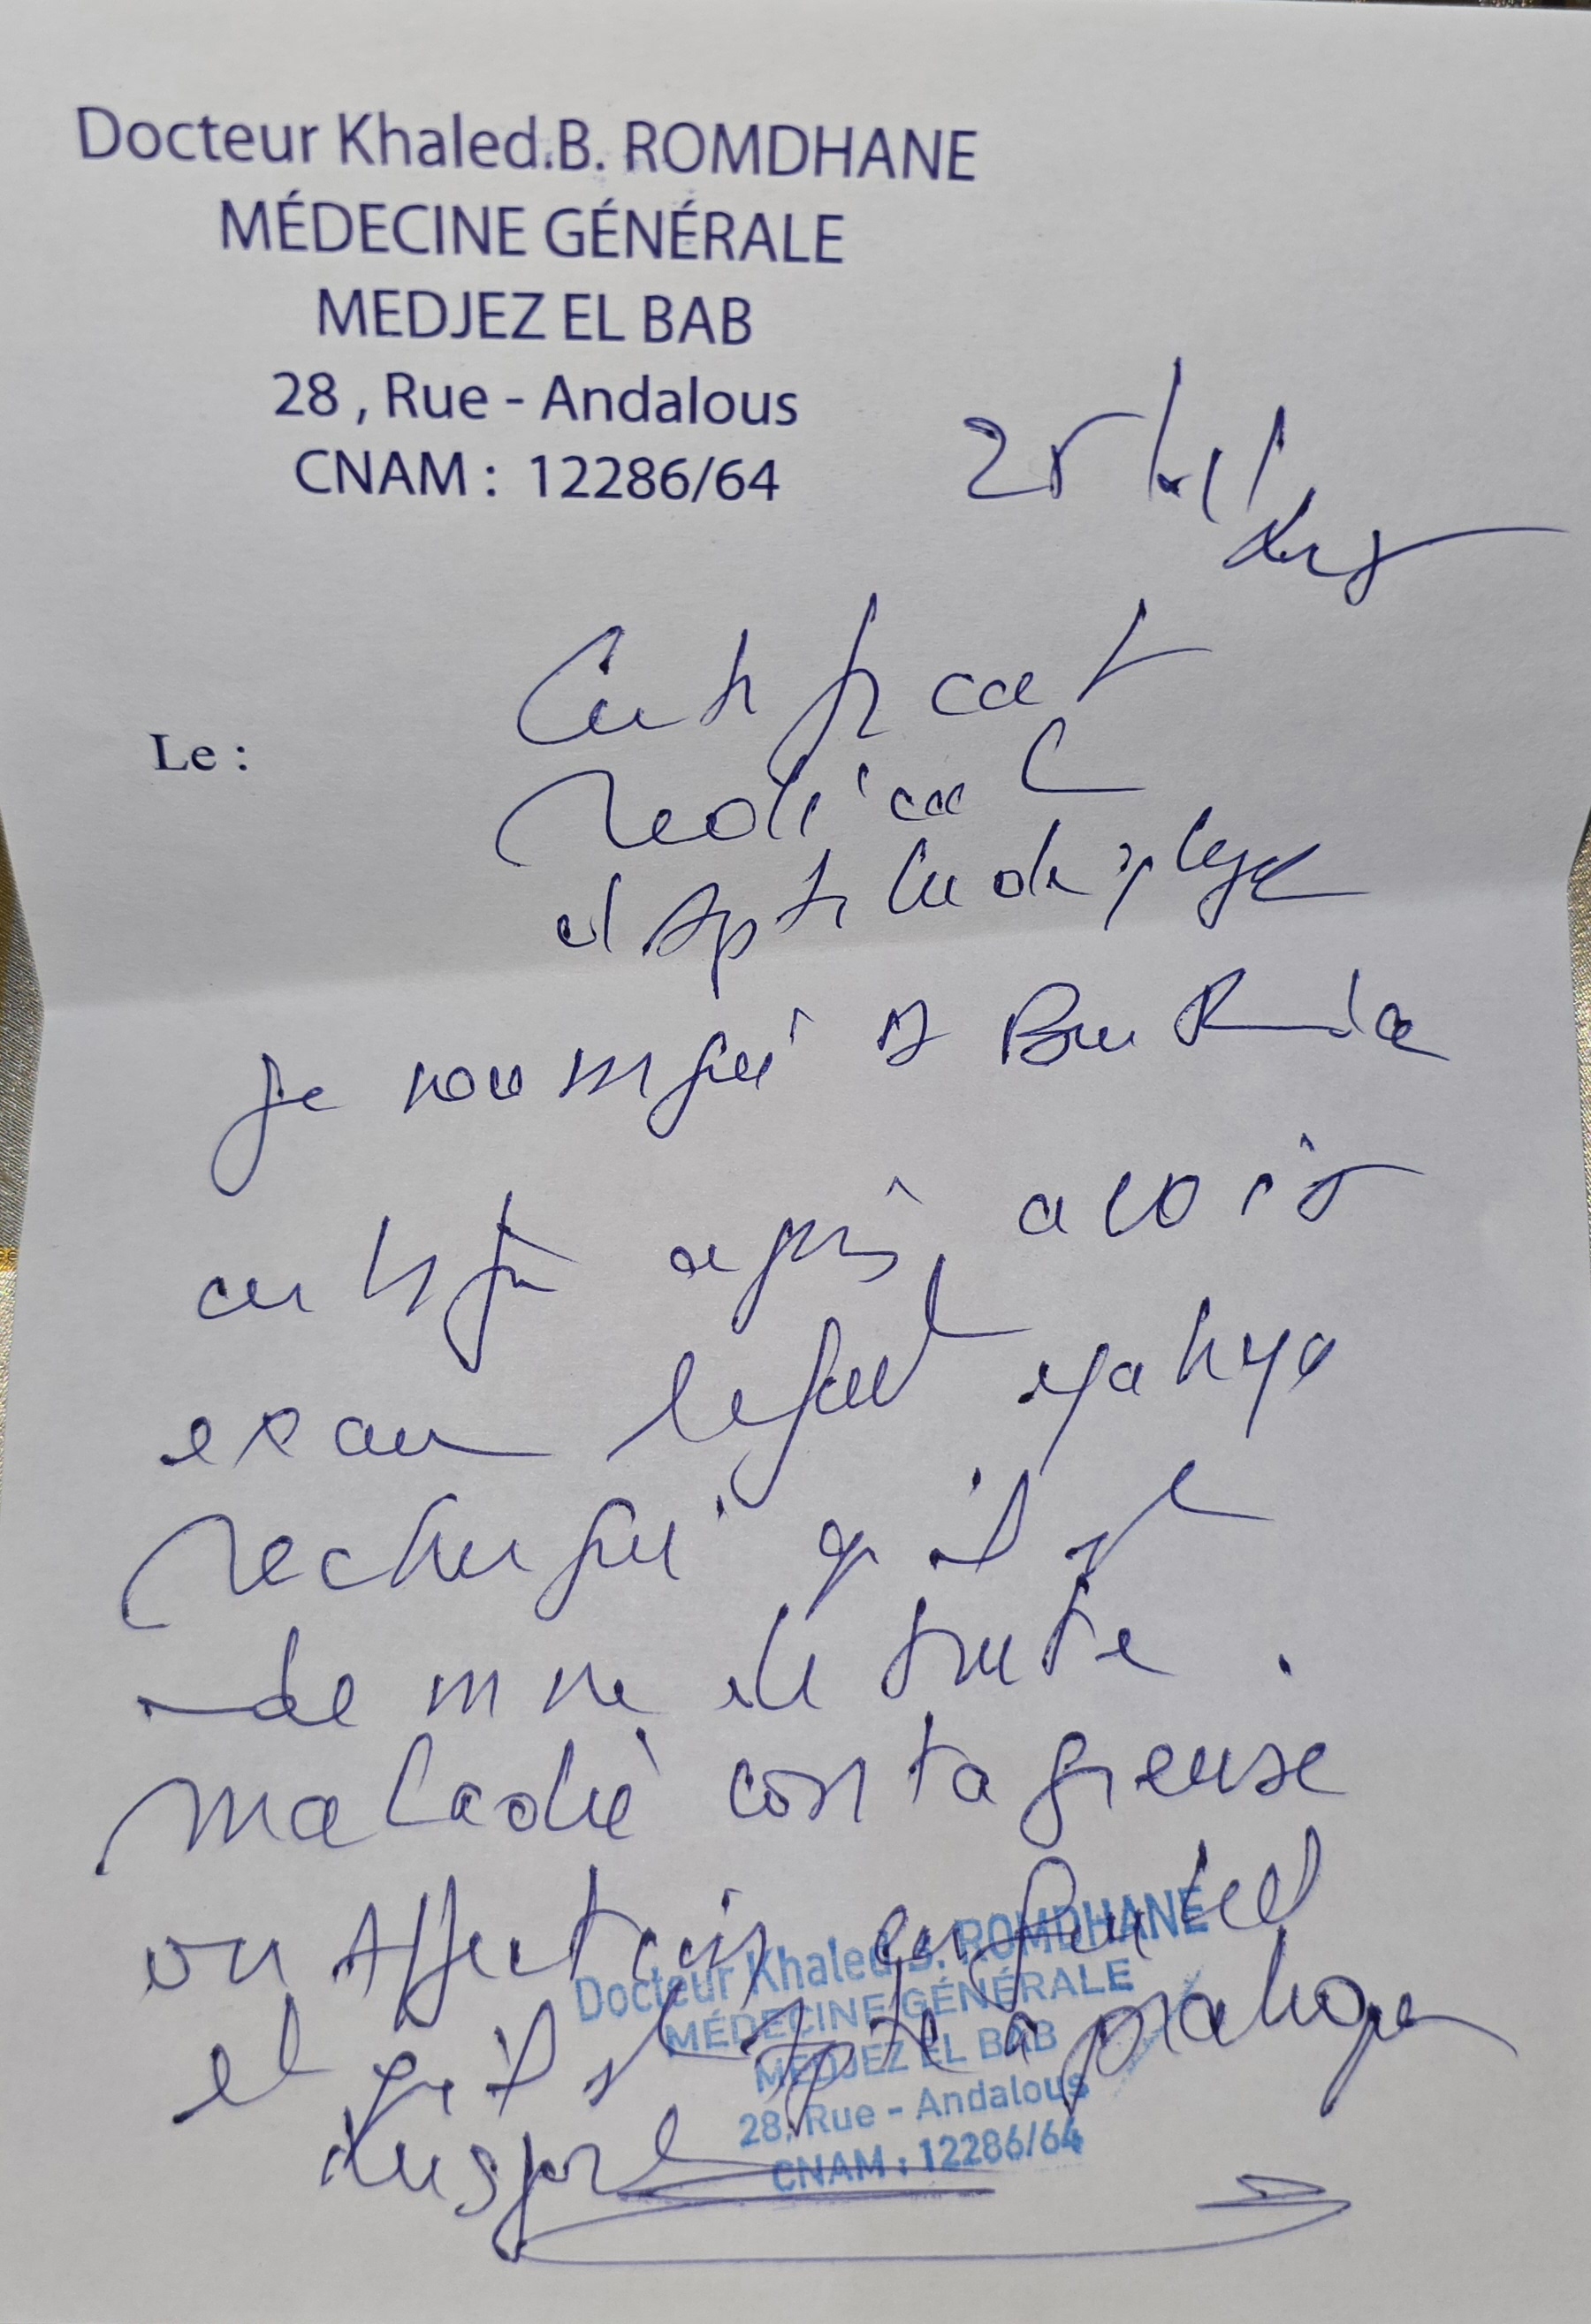 Docteur Khaled.B. ROMDHANE
MÉDECINE GÉNÉRALE
MEDJEZ EL BAB
28 , Rue - Andalous
CNAM : 12286/64
25
Certificat
Le :
Medical
d'Aptitude
Je soussigné Dr Ben Romdhane
certifie après avoir
examiné l'enfant
qu'il est
indemne de toute
maladie contagieuse
ou Affection
et qu'il est apte à pratiquer
du sport
Docteur Khaled B. ROMDHANE
MÉDECINE GÉNÉRALE
MEDJEZ EL BAB
28, Rue - Andalous
CNAM : 12286/64